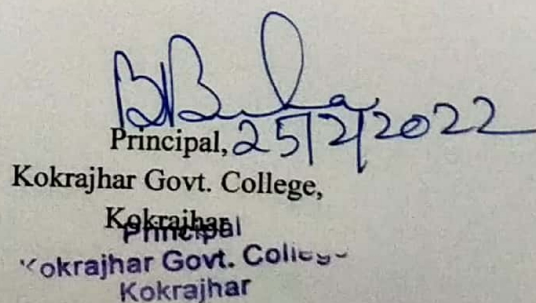 Principal, 25/2/2022
Kokrajhar Govt. College,
Kokrajhar
Principal
Kokrajhar Govt. College
Kokrajhar